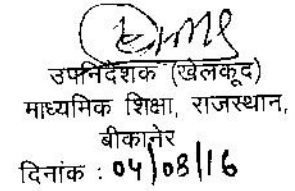 उपनिदेशक (खेलकूद)
माध्यमिक शिक्षा, राजस्थान,
बीकानेर
दिनांक : 04/08/16